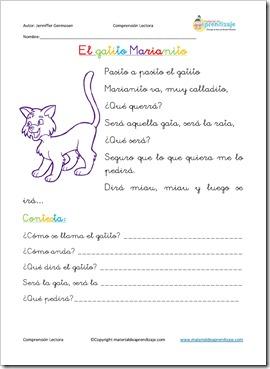 Autor: Jenniffer Germosen
Comprensión Lectora
aprendizaje
Nombre:
El gatito Marianito
Pasito a pasito el gatito
Marianito va, muy calladito,
¿Qué querrá?
Será aquella gata, será la rata,
¿Qué será?
Seguro que lo que quiera me lo
pedirá.
Dirá miau, miau y luego se
irá...
Contesta:
¿Cómo se llama el gatito?
¿Cómo anda?
¿Qué dirá el gatito?
Será la gata, será la
¿Qué pedirá?
Comprensión Lectora
©Copyright materialdeaprendizaje.com
www.materialdeaprendizaje.com